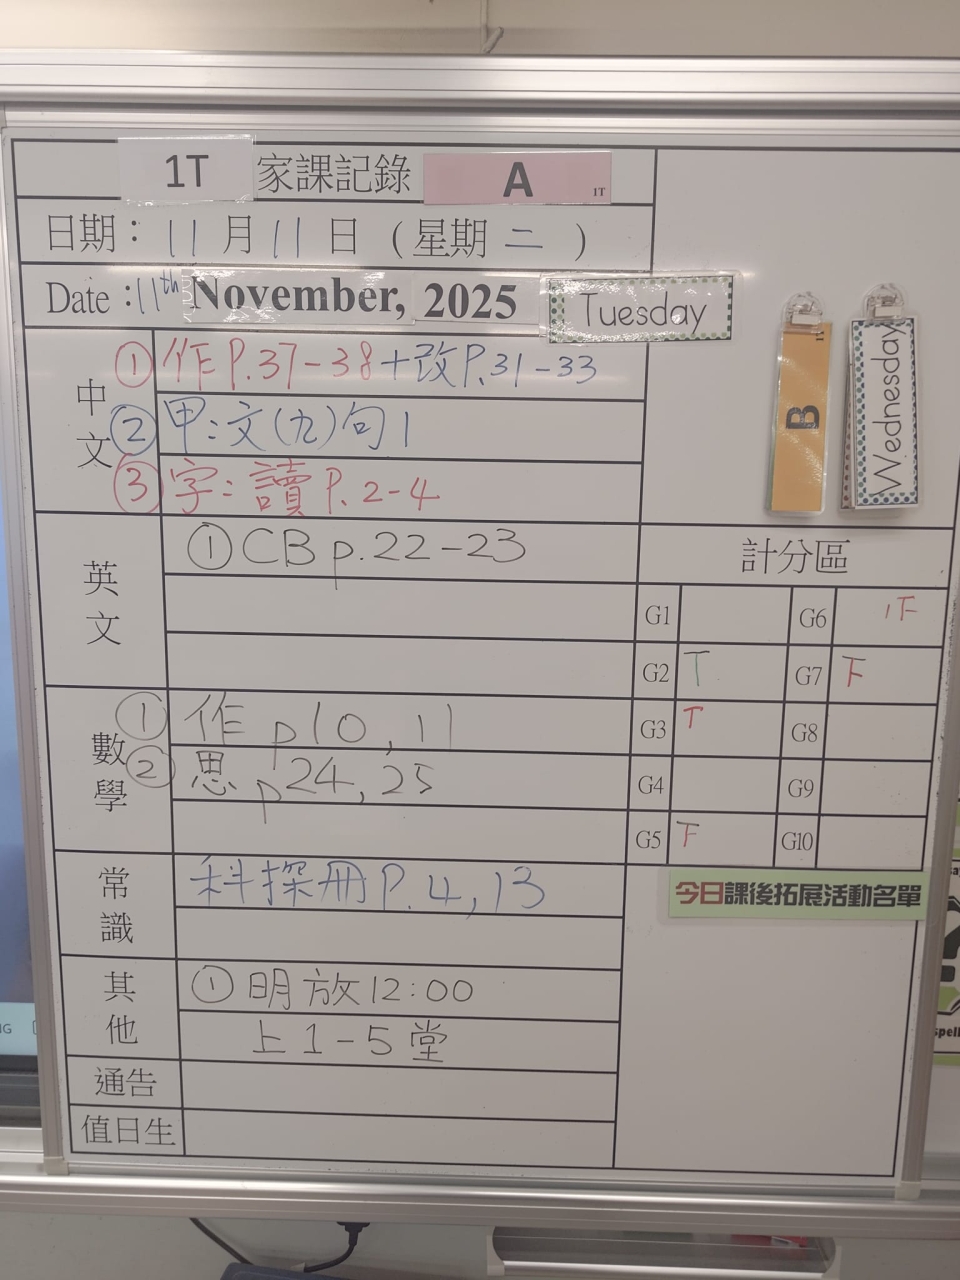 1T 家課記錄 A 1T
日期：11月11日（星期二）
Date : 11th November, 2025 Tuesday
中文
① 作 P.37-38+改P.31-33
② 甲：文(九)句1
③ 字：讀 P.2-4
B
Wednesday
英文
① CB p.22-23
計分區
G1
G6 正
G2 T
G7 F
G3 T
G8
G4
G9
G5 F
G10
數學
① 作 p10, 11
② 思 p24, 25
常識
科探冊 P.4, 13
今日課後拓展活動名單
其他
① 明放12:00
上1-5堂
通告
值日生